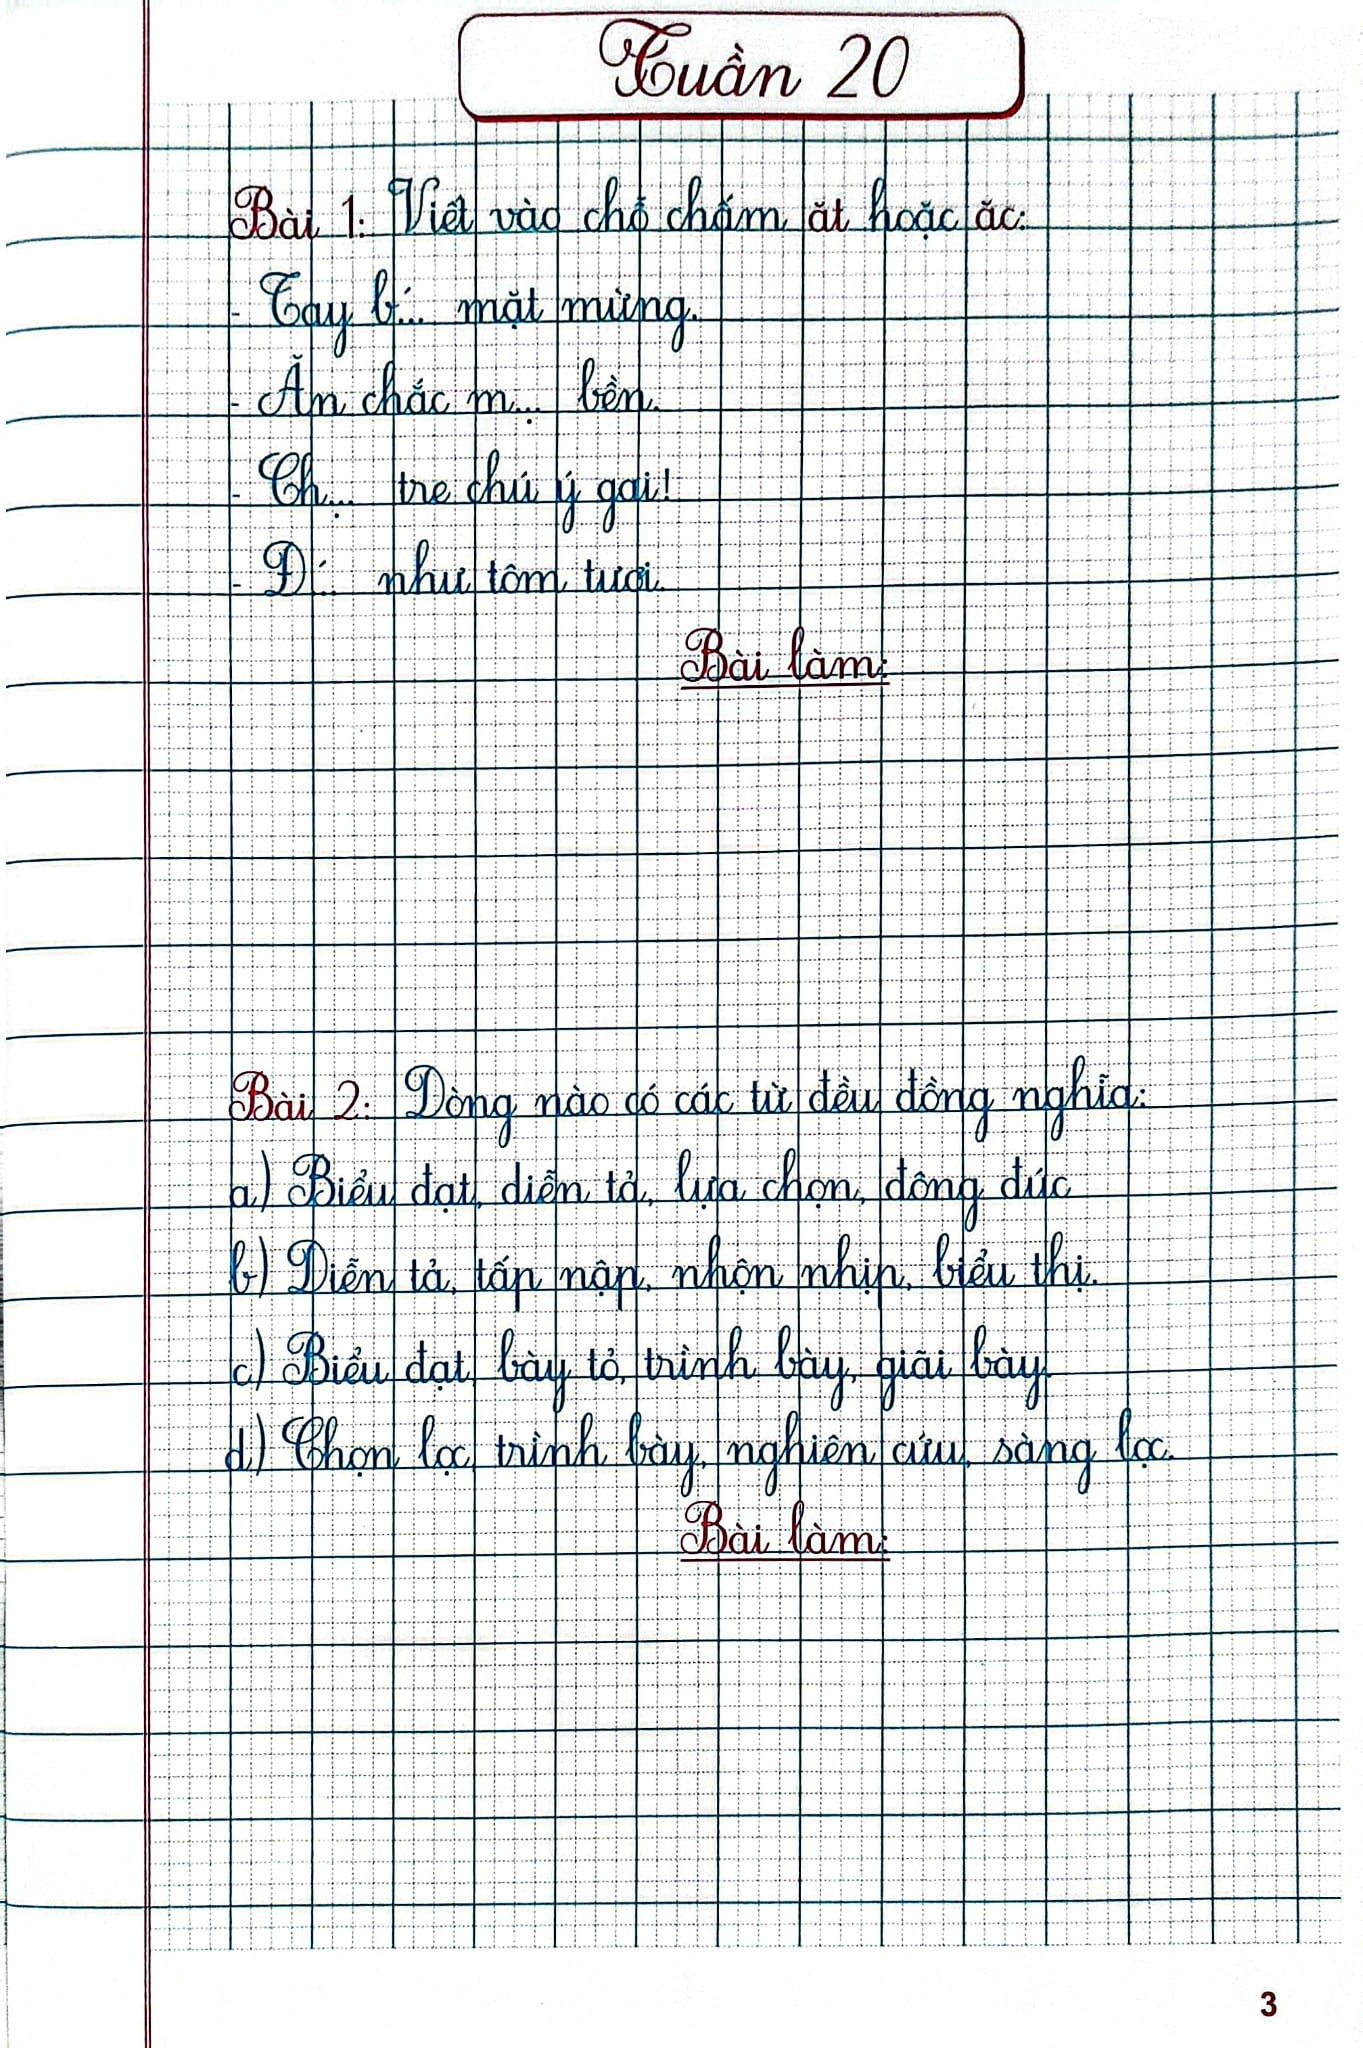 Tuần 20
Bài 1: Viết vào chỗ chấm ăt hoặc ăc:
- Tay b... mặt mừng.
- Ăn chắc m... bền.
- Ch... tre chú ý gai!
- Đ... như tôm tươi.
Bài làm:
Bài 2: Dòng nào có các từ đều đồng nghĩa:
a) Biểu đạt, diễn tả, lựa chọn, đông đúc
b) Diễn tả, tấp nập, nhộn nhịp, biểu thị.
c) Biểu đạt, bày tỏ, trình bày, giãi bày.
d) Chọn lọc, trình bày, nghiên cứu, sàng lọc.
Bài làm:
3